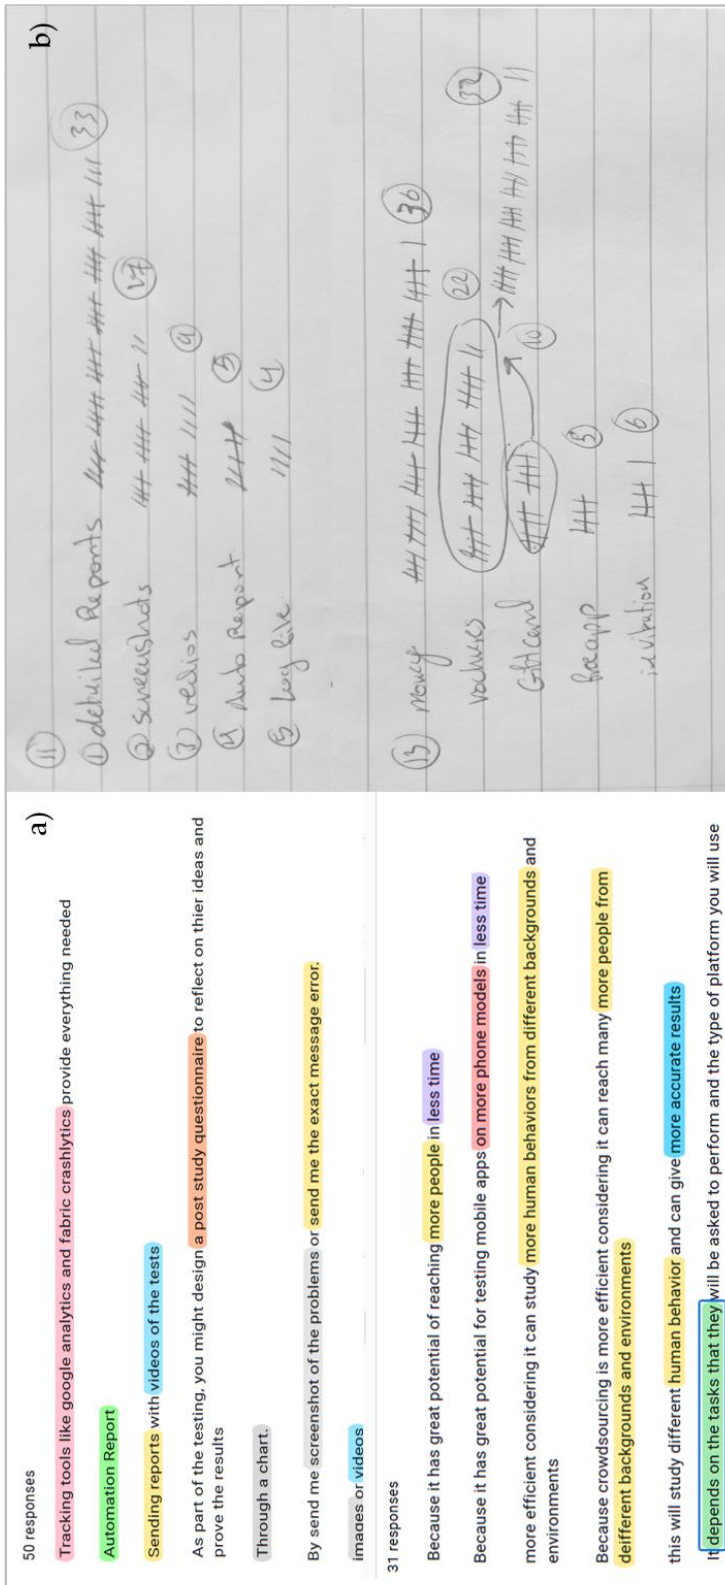 a)
50 responses
Tracking tools like google analytics and fabric crashlytics provide everything needed
Automation Report
Sending reports with videos of the tests
As part of the testing, you might design a post study questionnaire to reflect on thier ideas and
prove the results
Through a chart.
By send me screenshot of the problems or send me the exact message error.
images or videos
31 responses
Because it has great potential of reaching more people in less time
Because it has great potential for testing mobile apps on more phone models in less time
more efficient considering it can study more human behaviors from different backgrounds and
environments
Because crowdsourcing is more efficient considering it can reach many more people from
deifferent backgrounds and environments
this will study different human behavior and can give more accurate results
It depends on the tasks that they will be asked to perform and the type of platform you will use
b)
11
1 detailed Reports 33
2 screenshots
3 vedios
4 Auto Report 5
5 Log file 4
13 Money 36
Vochures 22 32
Gift card 10
free app 5
invitation 6